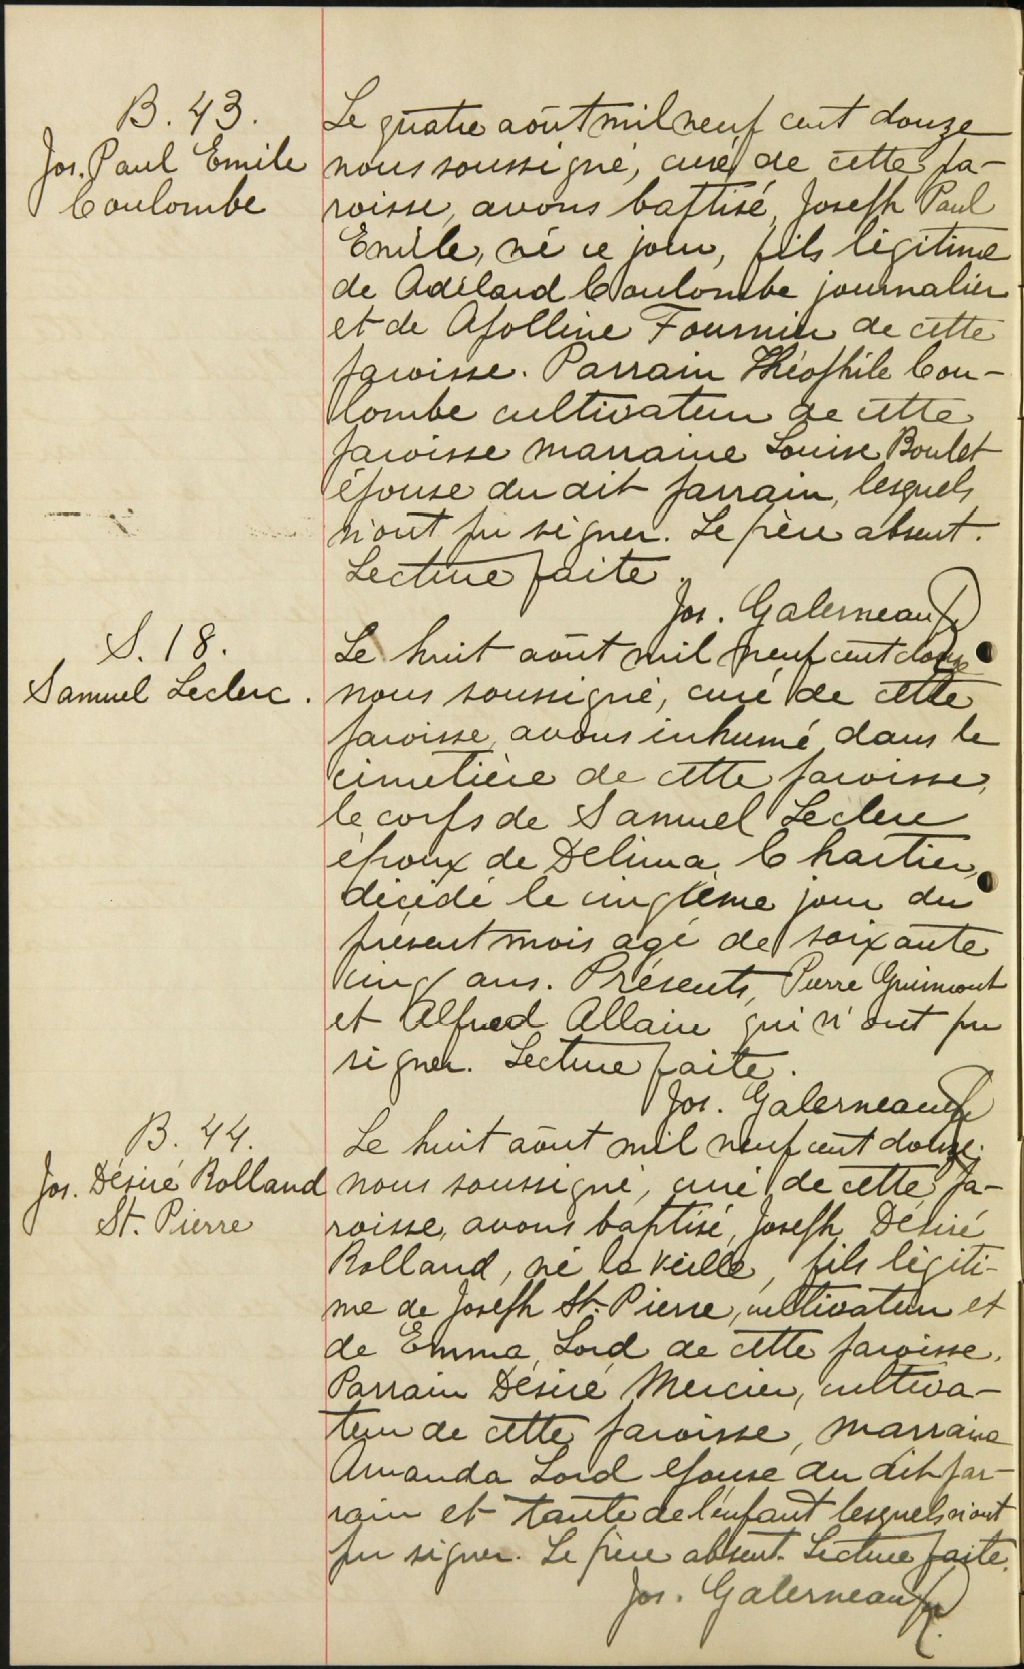 B. 43.
Jos. Paul Emile
Coulombe
Le quatre août mil neuf cent douze
nous soussigné, curé de cette pa-
roisse, avons baptisé, Joseph Paul
Emile, né ce jour, fils légitime
de Adélard Coulombe journalier
et de Apolline Fournier de cette
paroisse. Parrain Théophile Cou-
lombe cultivateur de cette
paroisse marraine Louise Boulet
épouse du dit parrain, lesquels
n'ont pu signer. Le père absent.
Lecture faite.
Jos. Galerneau Ptr
S. 18.
Samuel Leclerc.
Le huit août mil neuf cent douze
nous soussigné, curé de cette
paroisse, avons inhumé, dans le
cimetière de cette paroisse,
le corps de Samuel Leclerc
époux de Délima Chartier,
décédé le cinqième jour du
présent mois agé de soixante
cinq ans. Présents, Pierre Guimont
et Alfred Allaire qui n'ont pu
signer. Lecture faite.
Jos. Galerneau Ptr
B. 44.
Jos. Désiré Rolland
St. Pierre
Le huit août mil neuf cent douze,
nous soussigné, curé de cette pa-
roisse, avons baptisé, Joseph Désiré
Rolland, né la veille, fils légiti-
me de Joseph St. Pierre, cultivateur et
de Emma Lord de cette paroisse.
Parrain Désiré Mercier, cultiva-
teur de cette paroisse, marraine
Amanda Lord épouse du dit par-
rain et tante de l'enfant lesquels n'ont
pu signer. Le père absent. Lecture faite.
Jos. Galerneau Ptr.